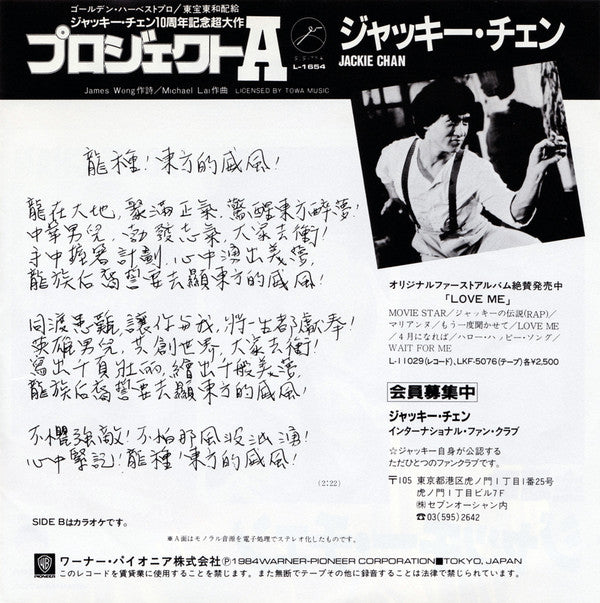 ゴールデン・ハーベストプロ/東宝東和配給
ジャッキー・チェン10周年記念超大作
プロジェクトA
L-1654
ジャッキー・チェン
JACKIE CHAN
James Wong作詩/Michael Lai作曲 LICENSED BY TOWA MUSIC
龍種!東方的威風!
龍在大地,聚滿正氣,驚醒東方醉夢!
中華男兒,勁發志氣,大家去衝!
手中握著計劃,心中湧出義夢,
龍族后裔誓要去顯東方的威風!
同渡患難,讓你与我,將一生都獻奉!
英雄男兒,共創世界,大家去衝!
寫出千頁壯的,繪出千般美夢,
龍族后裔誓要去顯東方的威風!
不懼強敵!不怕那風波洶湧!
心中緊記!龍種!東方的威風!
(2:22)
オリジナルファーストアルバム絶賛発売中
「LOVE ME」
MOVIE STAR/ジャッキーの伝説(RAP)/
マリアンヌ/もう一度聞かせて/LOVE ME
/4月になれば/ハロー・ハッピー・ソング/
WAIT FOR ME
L-11029(レコード)、LKF-5076(テープ)各¥2,500
会員募集中
ジャッキー・チェン
インターナショナル・ファン・クラブ
☆ジャッキー自身が公認する
ただひとつのファンクラブです。
〒105 東京都港区虎ノ門1丁目1番25号
虎ノ門1丁目ビル7F
㈱セブンオーシャン内
☎03(595)2642
SIDE Bはカラオケです。
※A面はモノラル音源を電子処理でステレオ化したものです。
WB
PIONEER
ワーナー・パイオニア株式会社Ⓟ1984WARNER-PIONEER CORPORATION■TOKYO, JAPAN
このレコードを賃貸業に使用することを禁じます。また無断でテープその他に録音することは法律で禁じられています。